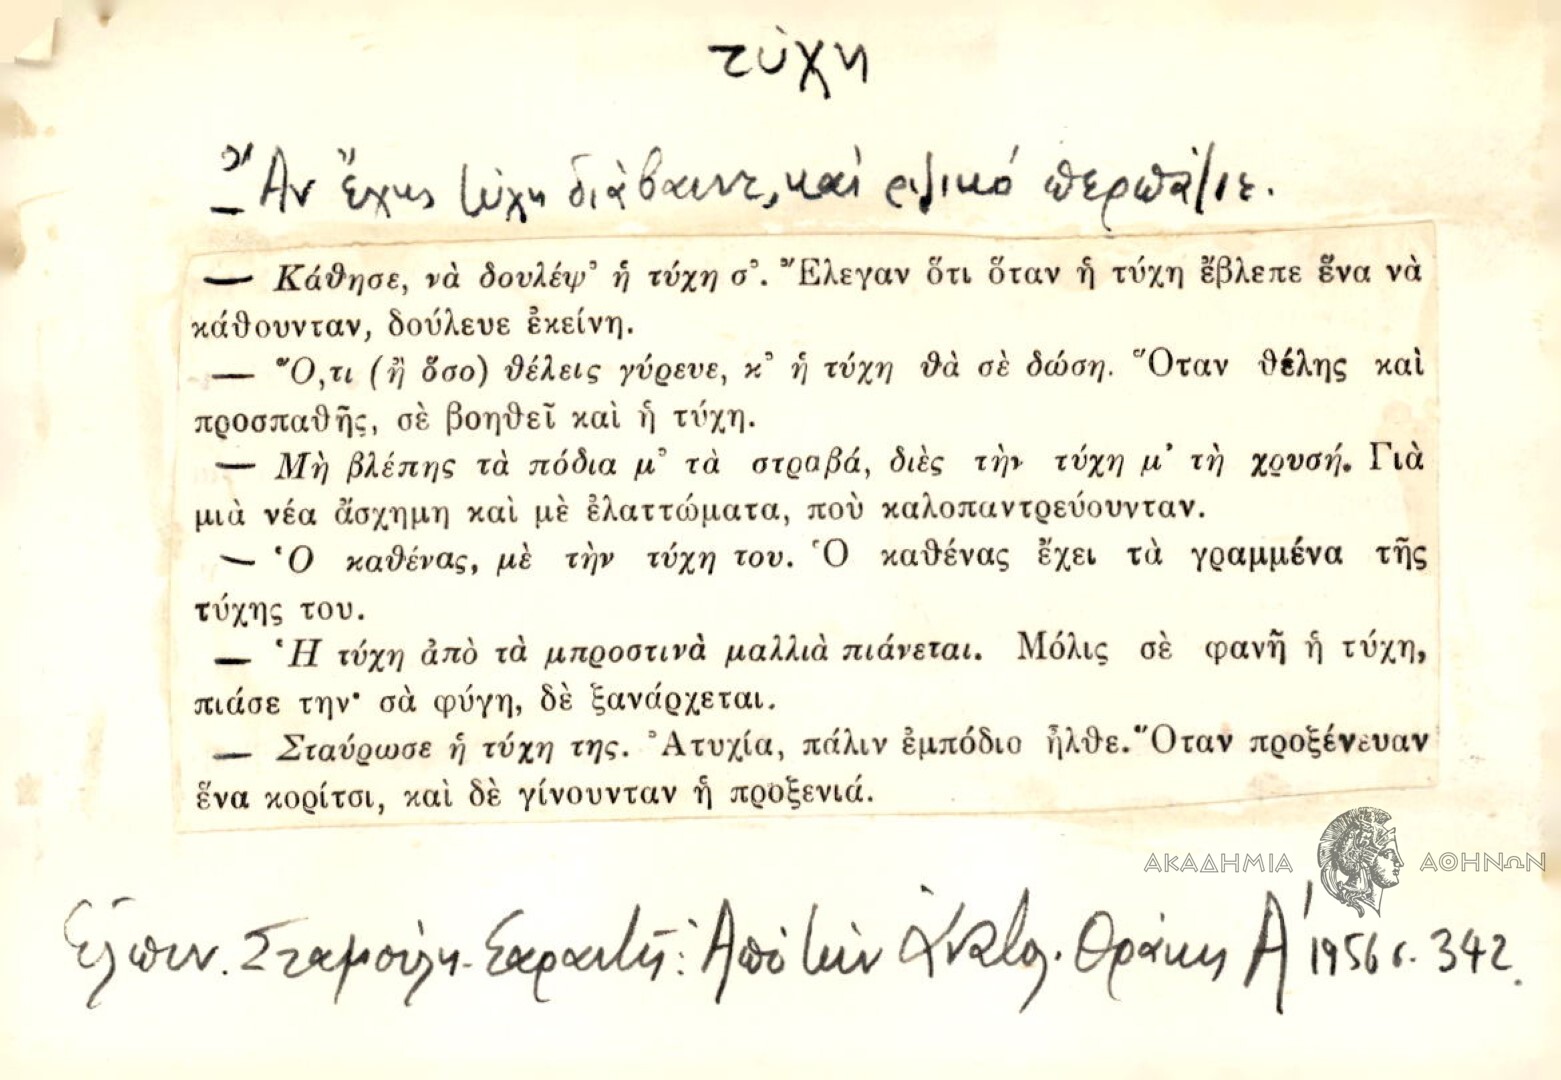 τύχη
— Ἂν ἔχῃς τύχη διάβαινε, καὶ ριζικό περπάτιε.
— Κάθησε, νὰ δουλέψ᾿ ἡ τύχη σ᾿. Ἔλεγαν ὅτι ὅταν ἡ τύχη ἔβλεπε ἕνα νὰ
κάθουνταν, δούλευε ἐκείνη.
— Ὅ,τι (ἢ ὅσο) θέλεις γύρευε, κ᾿ ἡ τύχη θὰ σὲ δώση. Ὅταν θέλης καὶ
προσπαθῆς, σὲ βοηθεῖ καὶ ἡ τύχη.
— Μὴ βλέπης τὰ πόδια μ᾿ τὰ στραβά, διὲς τὴν τύχη μ᾿ τὴ χρυσή. Γιὰ
μιὰ νέα ἄσχημη καὶ μὲ ἐλαττώματα, ποὺ καλοπαντρεύουνταν.
— Ὁ καθένας, μὲ τὴν τύχη του. Ὁ καθένας ἔχει τὰ γραμμένα τῆς
τύχης του.
— Ἡ τύχη ἀπὸ τὰ μπροστινὰ μαλλιὰ πιάνεται. Μόλις σὲ φανῆ ἡ τύχη,
πιάσε την· σὰ φύγη, δὲ ξανάρχεται.
— Σταύρωσε ἡ τύχη της. Ἀτυχία, πάλιν ἐμπόδιο ἦλθε. Ὅταν προξένευαν
ἕνα κορίτσι, καὶ δὲ γίνουνταν ἡ προξενιά.
ΑΚΑΔΗΜΙΑ ΑΘΗΝΩΝ
Ἐλπιν. Σταμούλη-Σαραντῆ: Ἀπὸ τὴν Ἀνατολ. Θράκη Α' 1956 σ. 342.